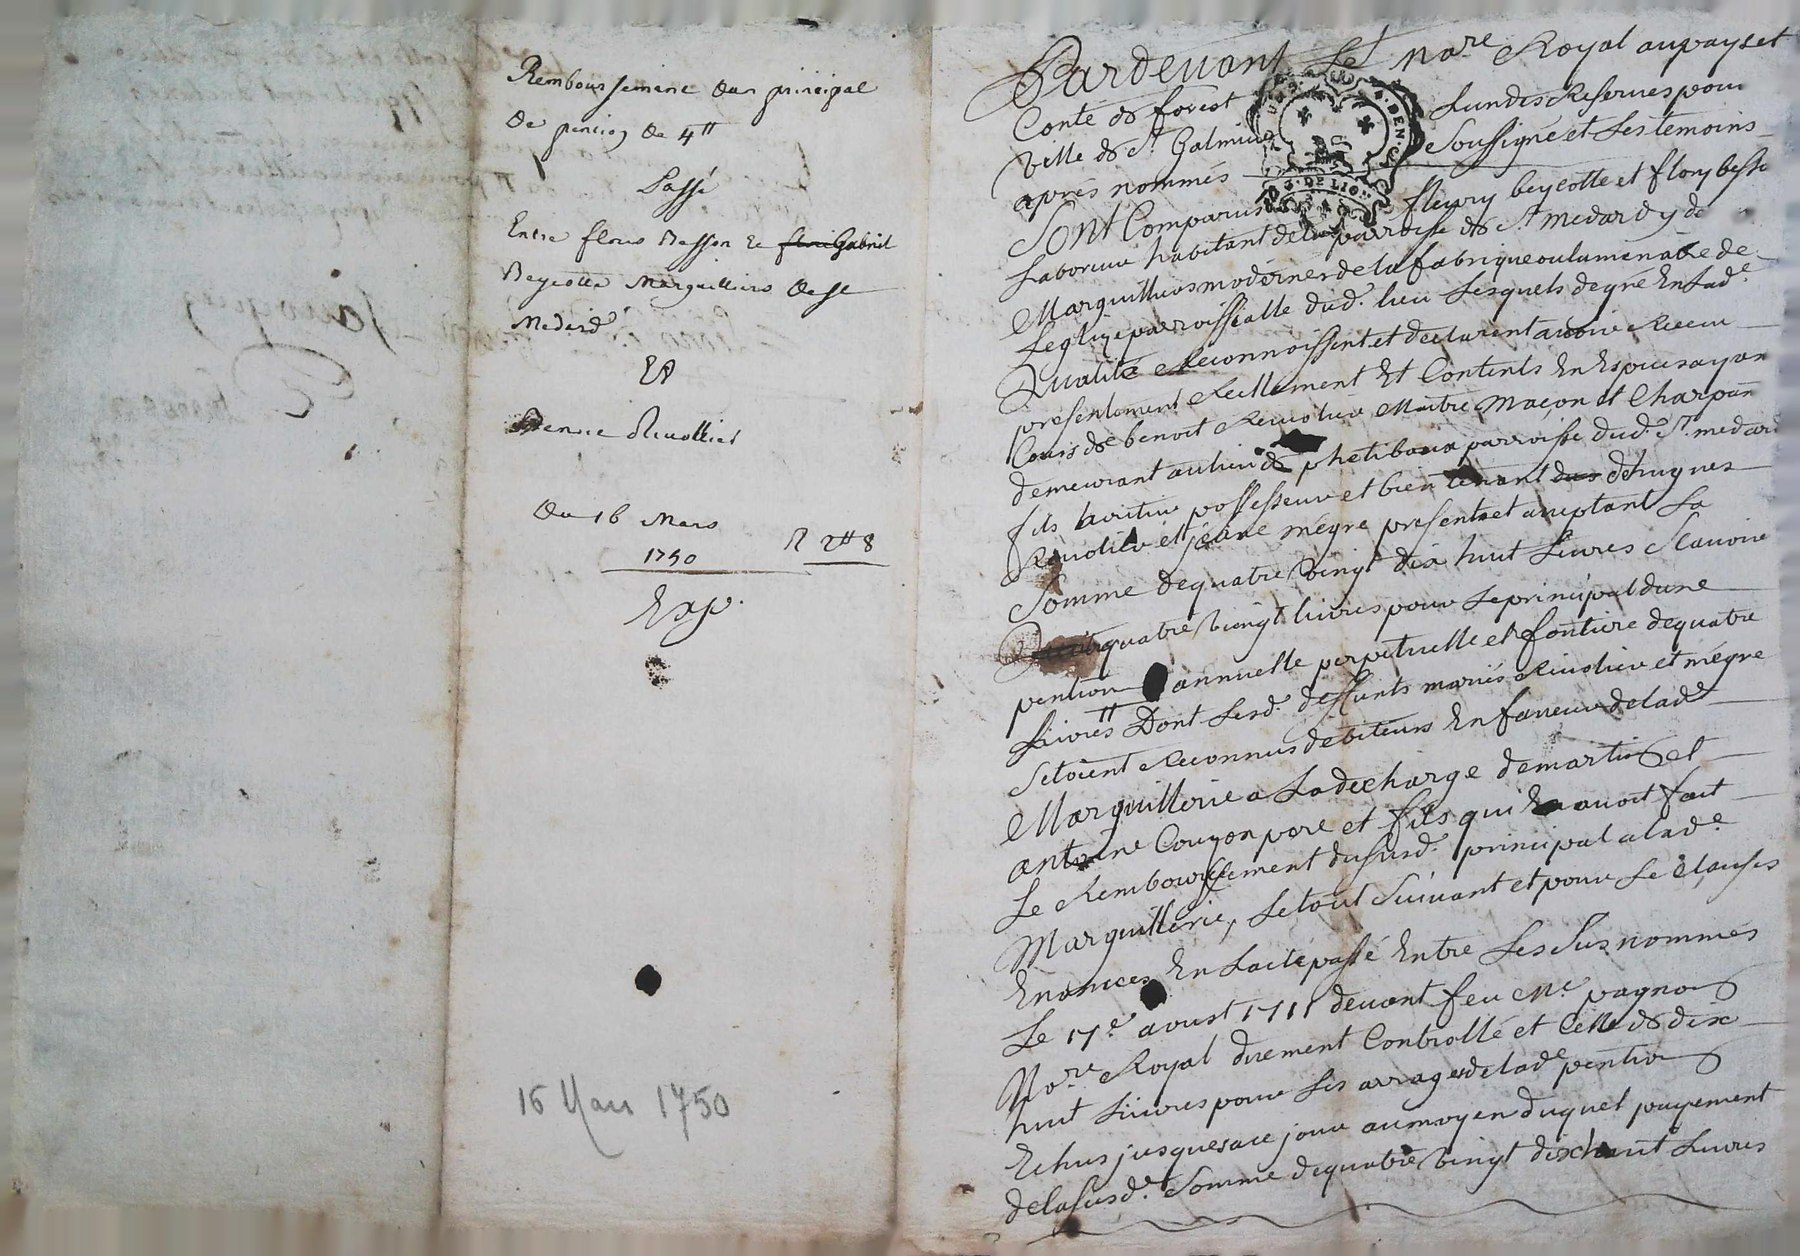 Remboursement dun principal
de pention de 4tt
Passé
Entre fleury Besson et Gabriel
Beycotte Marguilliers de St
Medard
Et
Benoit Rivollier
du 16 Mars
1750
R 2tt 8
Exp.
16 Mars 1750
Pardevant Le nore Royal au pays et
Conté de forest Lun des Reservés pour
ville de St. Galmier Soussigné et Les temoins
aprés nommés
Sont Comparus fleury beycotte et flory besson
Laboreur habitant de la parroisse de St. medard y de
Marguilliers modernes de la fabrique ou luminaire de
Leglize parroissialle dud. lieu Lesquels de gré En Lad.e
Qualité Reconnoissent et declarent avoir Receu
presentement Reellement Et Contents En Especes ayan
Cours de benoit Rivolier Maitre Maçon et Charpan
demeurant au lieu de parroisse dud. St. medard
fils heritier possesseur et bien tenant de hugues
Rivolier et jeane mégre present et acceptant La
Somme de quatre vingt dix huit Livres Scavoir
quatre vingt livres pour Le principal dune
pention annuelle perpetuelle et fontiere de quatre
Livres tt Dont Lesd. deffunts mariés Rivolier et mégre
Setoient Reconnus debiteurs En faveur de lad.e
Marguillerie a La decharge de martin et
antoine Couzon pere et fils qui En avoit fait
Le Remboursement du susd. principal a lad.e
Marguillerie, Le tout Suivant et pour Le Clauses
Enoncees En Lacte passé Entre Les Susnommés
Le 17e. avoust 1711 devant feu Me. pagnon
Nore. Royal duement Controllé et Celle de dix
huit Livres pour Les arrages de lad.e pention
Echus jusques a ce jour au moyen duquel payement
de la susd.e Somme de quatre vingt dix huit Livres